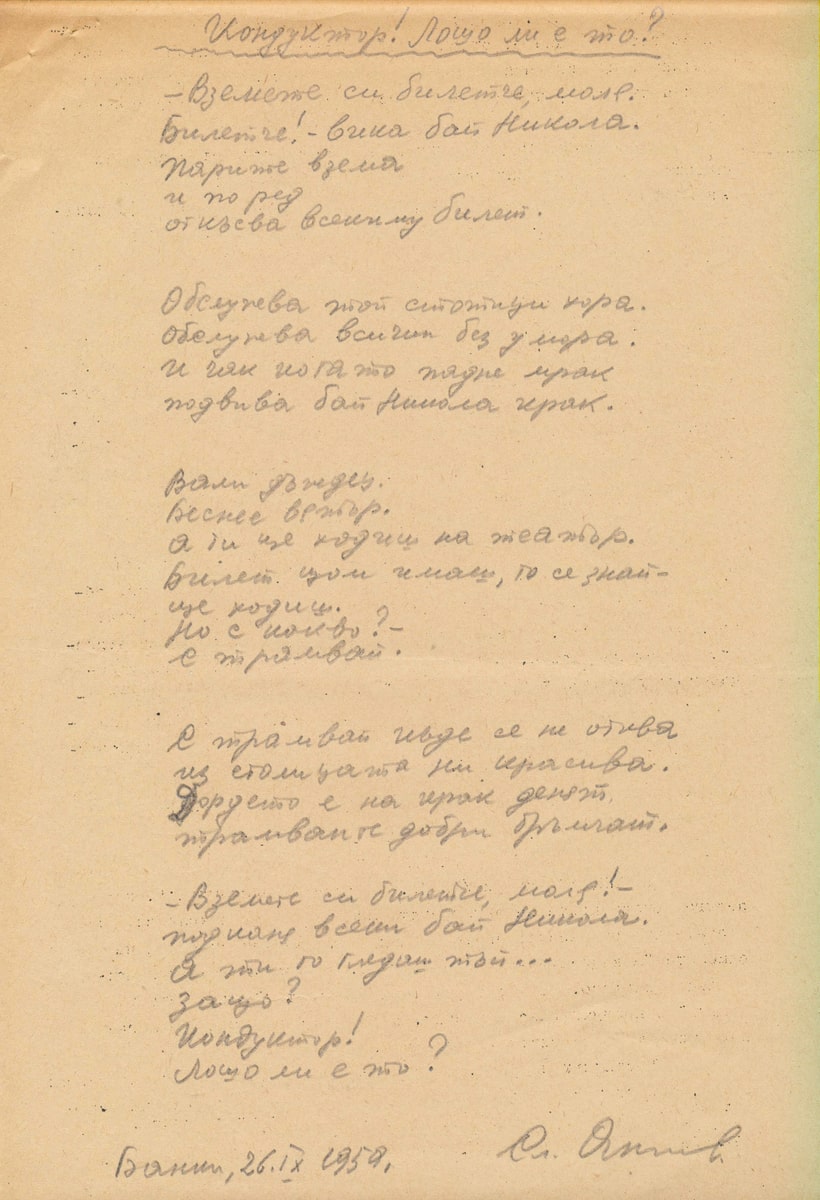 Кондуктор! Лошо ли е то?
– Вземете си билетче, моля.
Билетче! – вика бай Никола.
Парите взема
и по ред
откъсва всекиму билет.
Обслужева той стотици хора.
Обслужева всички без умора.
И чак когато падне мрак
подвива бай Никола крак.
Вали дъждец.
Беснее ветър.
А ти ще ходиш на театър.
Билет щом имаш, то се знай –
ще ходиш.
Но с какво? –
С трамвай.
С трамвай къде се не отива
из столицата ни красива.
Дордето е на крак денят
трамваите добри бръмчат.
– Вземете си билетче, моля! –
подканя всеки бай Никола.
А ти го гледаш тъй...
Защо?
Кондуктор!
Лошо ли е то?
Банки, 26.IX 1959.
Сл.